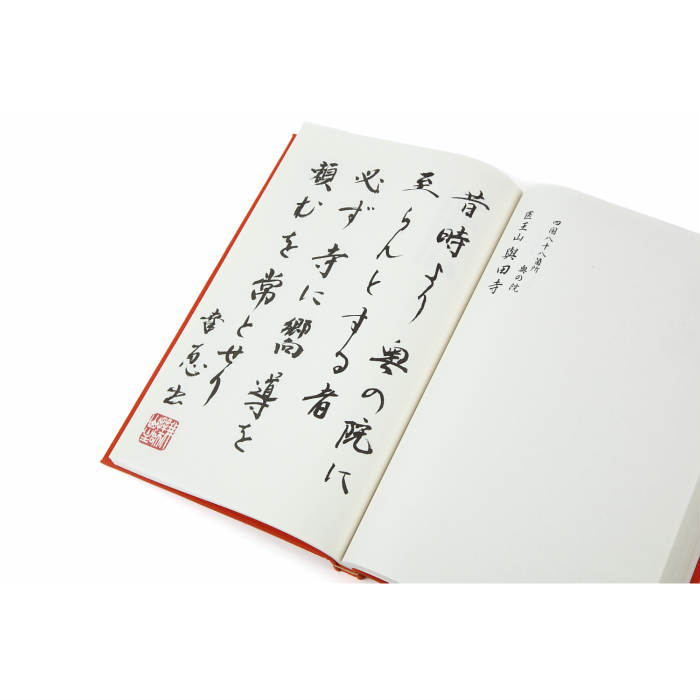 四国八十八箇所
奥の院
医王山 與田寺
昔時より奥の院に
至らんとする者
必ず寺に郷導を
頼むを常とせり